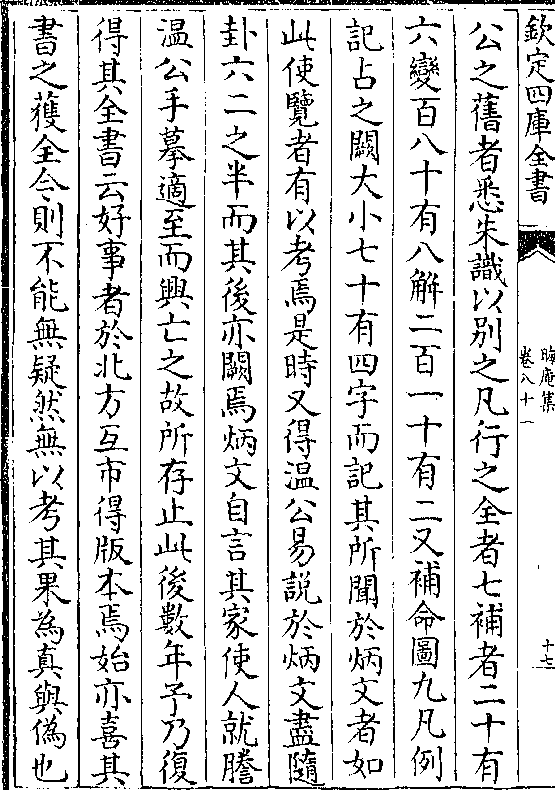 欽定四庫全書
晦庵集
卷八十一
十七
公之舊者悉朱識以别之凡行之全者七補者二十有
六變百八十有八解二百一十有二又補命圖九凡例
記占之闕大小七十有四字而記其所聞於炳文者如
此使覽者有以考焉是時又得温公易説於炳文盡隨
卦六二之半而其後亦闕焉炳文自言其家使人就謄
温公手摹適至而興亡之故所存止此後數年予乃復
得其全書云好事者於北方互市得版本焉始亦喜其
書之獲全今則不能無疑然無以考其果為真與偽也